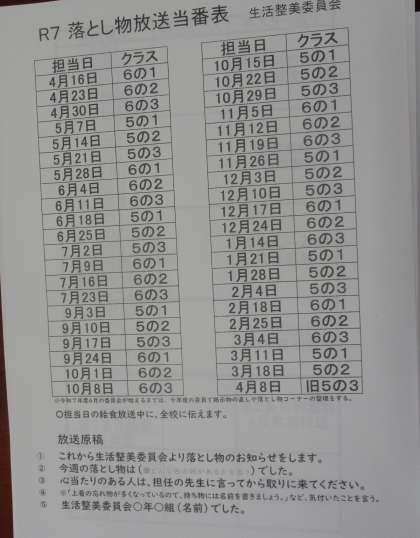 R7 落とし物放送当番表 生活整美委員会
担当日 クラス
4月16日 6の1
4月23日 6の2
4月30日 6の3
5月7日 5の1
5月14日 5の2
5月21日 5の3
5月28日 6の1
6月4日 6の2
6月11日 6の3
6月18日 5の1
6月25日 5の2
7月2日 5の3
7月9日 6の1
7月16日 6の2
7月23日 6の3
9月3日 5の1
9月10日 5の2
9月17日 5の3
9月24日 6の1
10月1日 6の2
10月8日 6の3
担当日 クラス
10月15日 5の1
10月22日 5の2
10月29日 5の3
11月5日 6の1
11月12日 6の2
11月19日 6の3
11月26日 5の1
12月3日 5の2
12月10日 5の3
12月17日 6の1
12月24日 6の2
1月14日 6の3
1月21日 5の1
1月28日 5の2
2月4日 5の3
2月18日 6の1
2月25日 6の2
3月4日 6の3
3月11日 5の1
3月18日 5の2
4月8日 旧5の3
○担当日の給食放送中に、全校に伝えます。
放送原稿
① これから生活整美委員会より落とし物のお知らせをします。
② 今週の落とし物は( )でした。
③ 心当たりのある人は、担任の先生に言ってから取りに来てください。
④ ※「上着の忘れ物が多くなっているので、持ち物には名前を書きましょう。」など、気付いたことを言う。
⑤ 生活整美委員会○年○組(名前)でした。